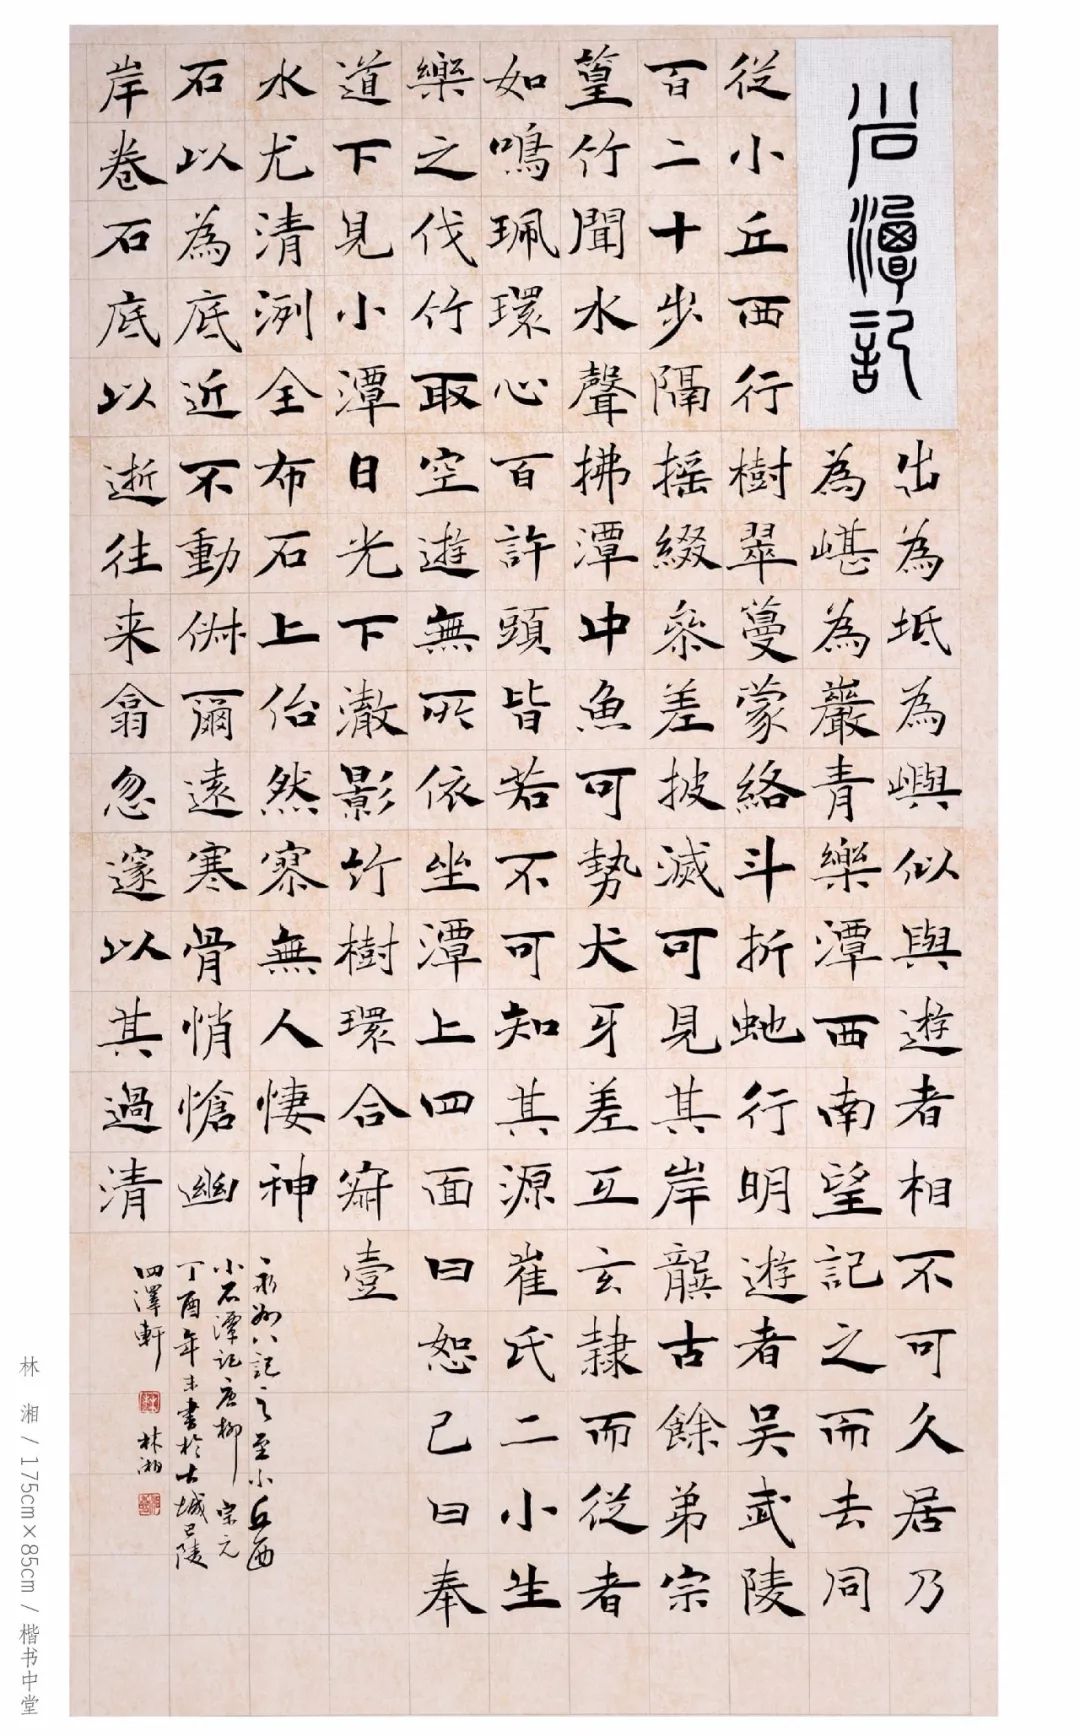 小石潭記
從小丘西行
百二十步隔
篁竹聞水聲
如鳴珮環心
樂之伐竹取
道下見小潭
水尤清洌全
石以為底近
岸卷石底以
出為坻為嶼
為嵁為巖青
樹翠蔓蒙絡
摇綴參差披
拂潭中魚可
百許頭皆若
空遊無所依
日光下澈影
布石上佁然
不動俶爾遠
逝往来翕忽
似與遊者相
樂潭西南望
斗折虵行明
滅可見其岸
勢犬牙差互
不可知其源
坐潭上四面
竹樹環合寂
寥無人悽神
寒骨悄愴幽
邃以其過清
不可久居乃
記之而去同
遊者吴武陵
龔古餘弟宗
玄隸而從者
崔氏二小生
曰恕己曰奉
壹
永州八記之至小丘西
小石潭記唐柳宗元
丁酉年末書於古城巴陵
四澤軒 林湘
林 湘 / 175cm×85cm / 楷书中堂